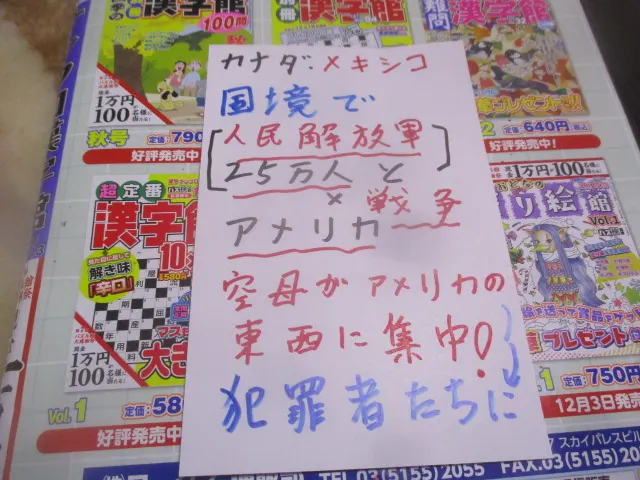 漢字館
100問
秋
1万円
100名様に
秋号
定価:790
好評発売中
別冊
漢字館
難問
漢字館
プレゼント
2 定価:640円(税込)
好評発売中!
カナダ:メキシコ
国境で
[人民解放軍]
25万人と
×戦争
アメリカ
空母がアメリカの
東西に集中!
犯罪者たちに
超定番
漢字館
解き味
「辛口」
580円
1万円
100名様に
大き
Vol.1 定価:58
好評発売中
1万円・100名
り絵館
Vol.1
プレゼント
定価:750円
12月3日発売
7 スカイパレスビル
TEL.03(5155)2055 FAX.03(5155)